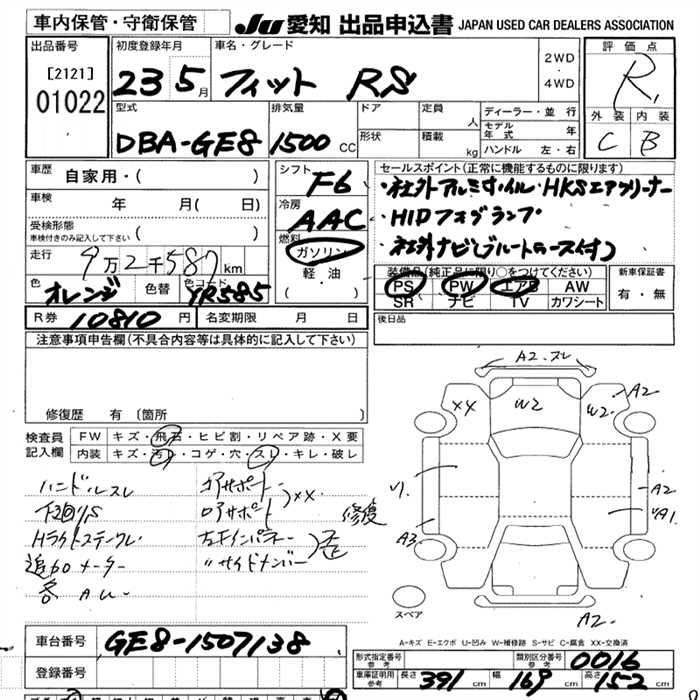 車内保管・守衛保管
JU 愛知 出品申込書 JAPAN USED CAR DEALERS ASSOCIATION
出品番号
[2121]
01022
初度登録年月
23 5月
車名・グレード
フィット RS
2WD
・
4WD
評価点
R1
外装 内装
C B
型式
DBA-GE8
排気量
1500 CC
ドア
形状
定員 人
積載 kg
ディーラー・並行
モデル年式 年
ハンドル 左・右
車歴 自家用・( )
車検 年 月( 日)
受検形態
車検付きのみ記入して下さい ( )
走行 9万2千587km
色 オレンジ 色替 色コード YR585
シフト
F6
冷房
AAC
燃料
ガソリン
軽・油
( )
セールスポイント(正常に機能するものに限ります)
・社外アルミホイル・HKSエアクリーナー
・HIDフォグランプ
・社外ナビ(ブルートゥース付)
装備品(純正品に限り○をつけてください)
PS PW エアB AW
SR ナビ TV カワシート
新車保証書
有・無
R券 10810 円 名変期限 月 日
後日品
注意事項申告欄(不具合内容等は具体的に記入して下さい)
修復歴 有〔箇所 〕
検査員記入欄
FW キズ・飛石・ヒビ割・リペア跡・X要
内装 キズ・汚れ・コゲ・穴・スレ・キレ・破レ
ハンドルスレ
下回りS
Hライトステークレ
追加メーター
各AU
コアサポート
ロアサポート
XX
修復
左右インパネー
〃サイドメンバー
歪
A2.スレ
XX
W2
W2
A2
A2
A1
A3
A2
スペア
A-キズ E-エクボ U-凹み W-補修跡 S-サビ C-腐食 XX-交換済
車台番号 GE8-1507138
登録番号
形式指定番号
参考
類別区分番号
参考
0016
車庫証明用
参考
長さ 391 cm 幅 169 cm 高さ 152 cm